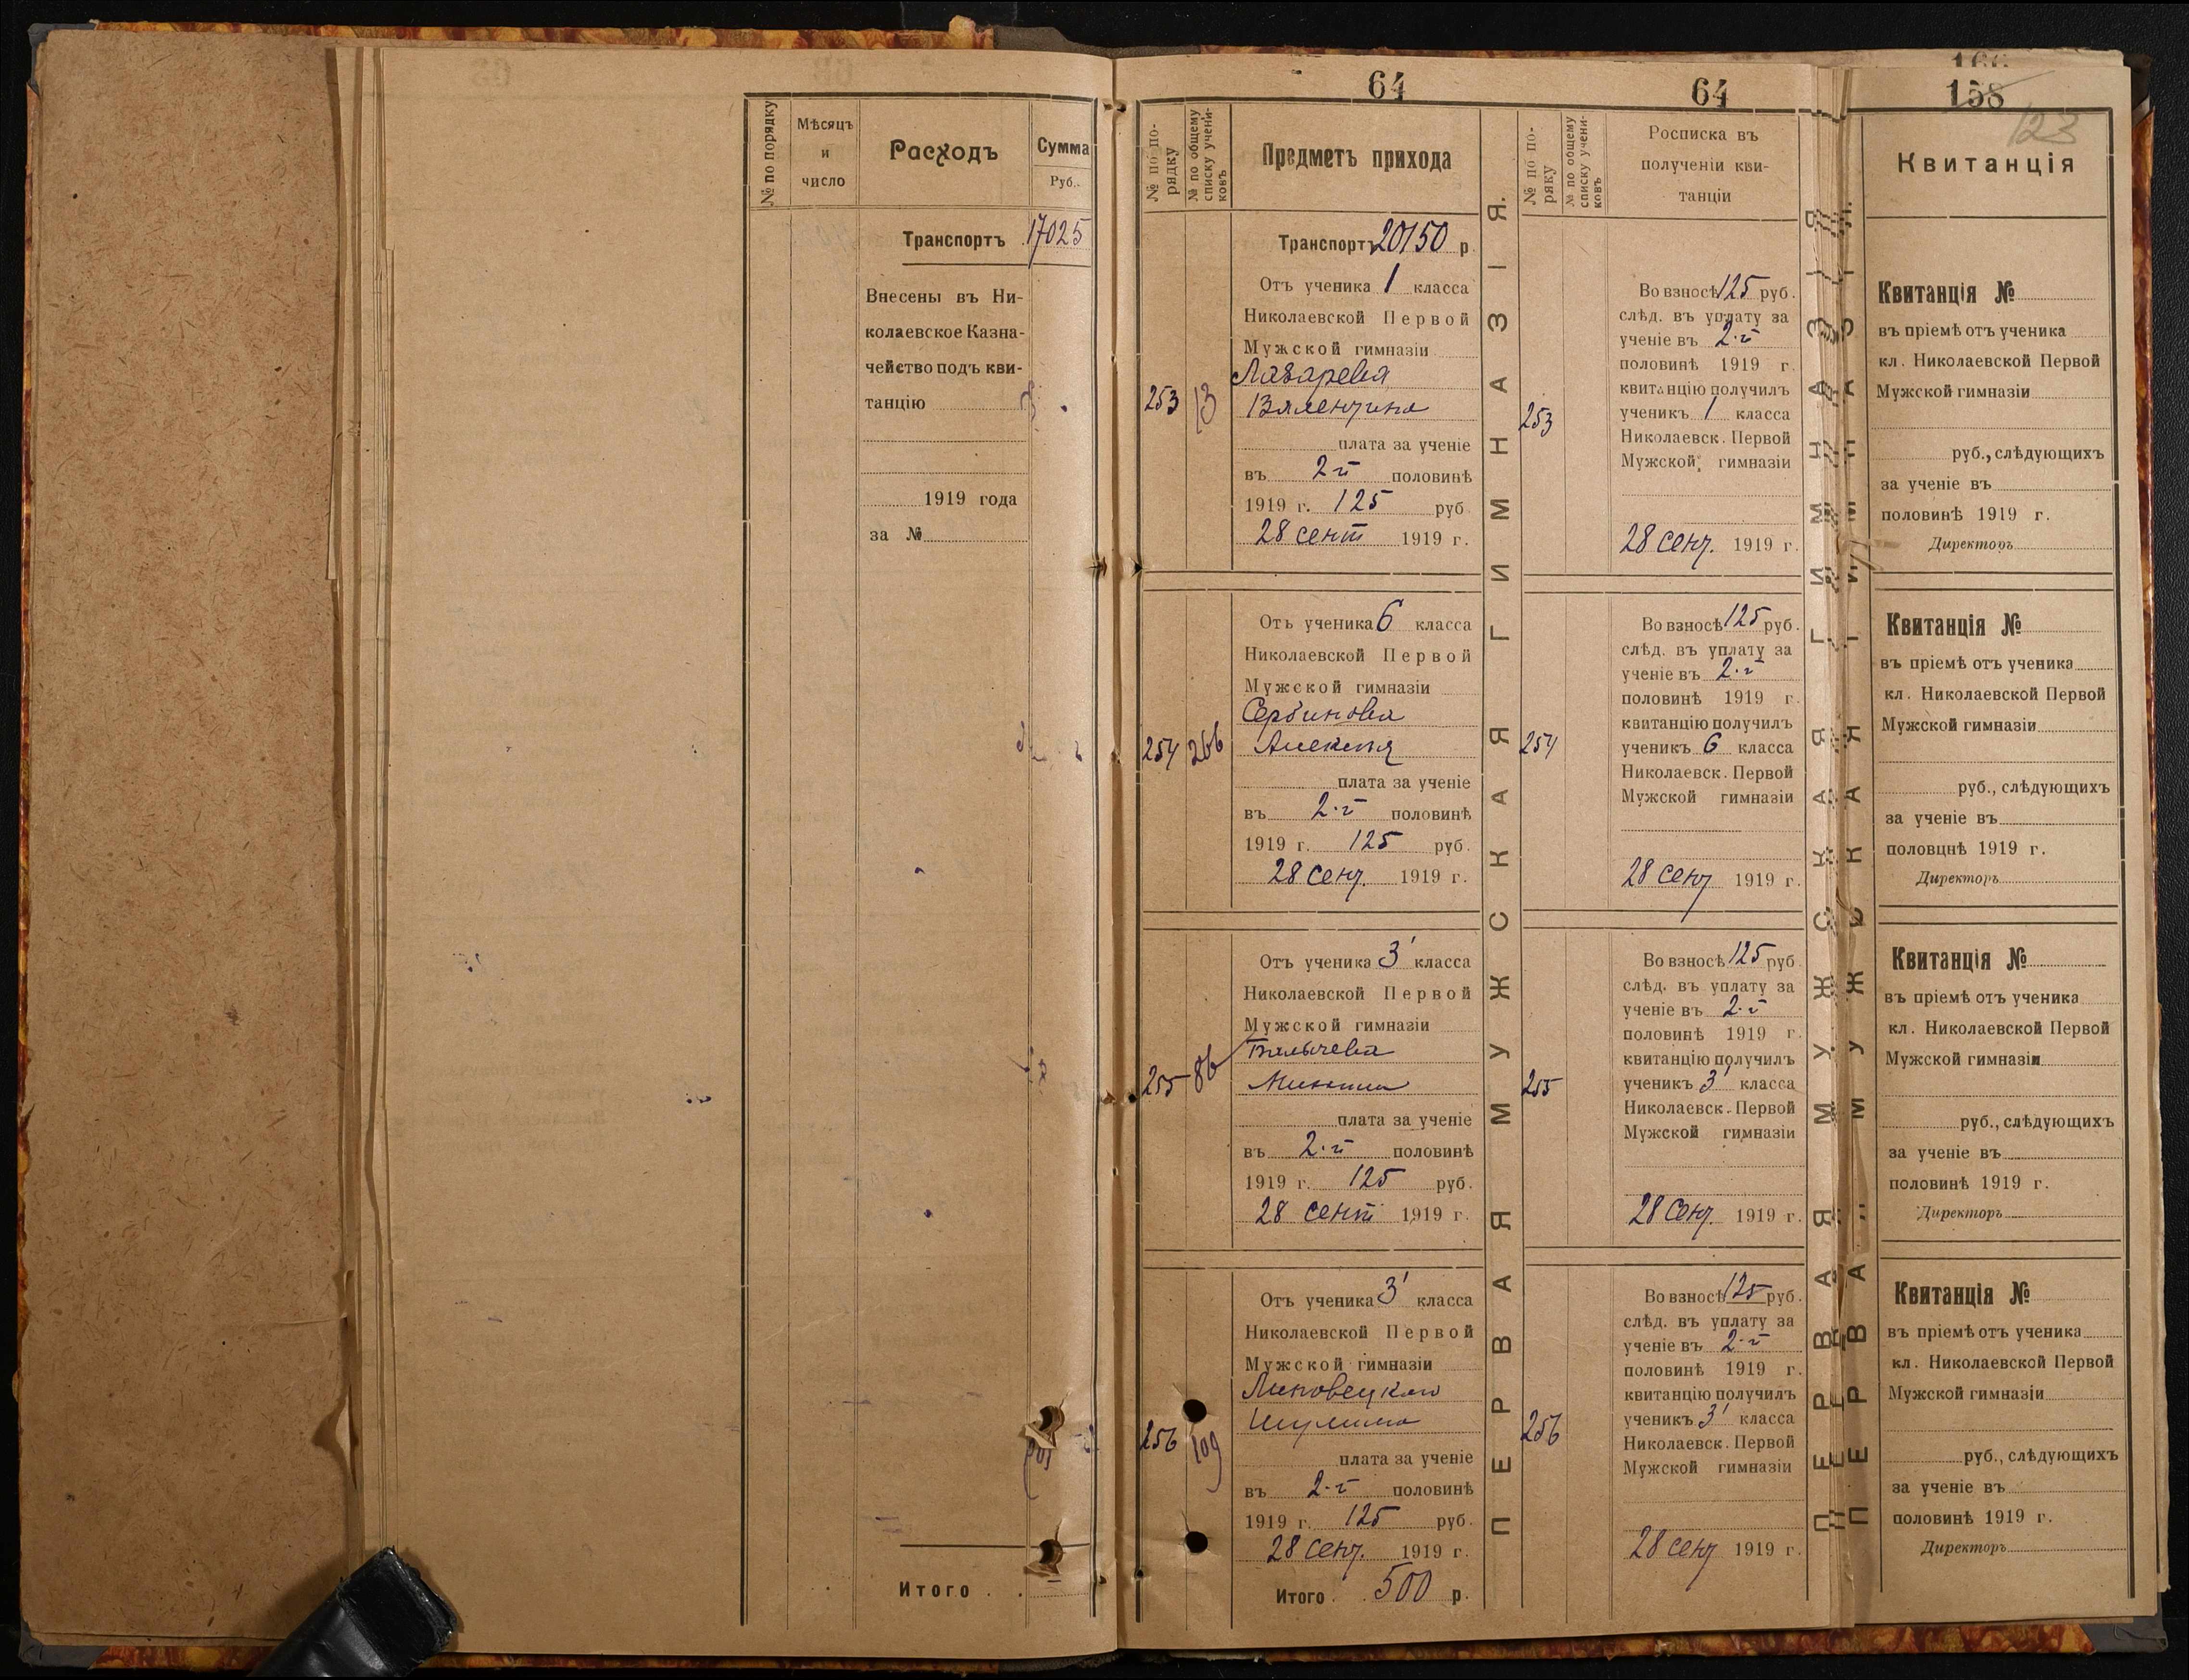 № по порядку
Мѣсяцъ
и
число
Расходъ
Сумма
Руб.
Транспортъ 17025
Внесены въ Ни-
колаевское Казна-
чейство подъ кви-
танцію
1919 года
за №
Итого
64
№ по по-
рядку
№ по общему
списку учени-
ковъ
Предметъ прихода
Транспортъ 20150 р.
253
13
Отъ ученика 1 класса
Николаевской Первой
Мужской гимназіи
Лазарева
Валентина
плата за ученіе
въ 2-й половинѣ
1919 г. 125 руб
28 сент 1919 г.
254
266
Отъ ученика 6 класса
Николаевской Первой
Мужской гимназіи
Сербинова
Алексѣя
плата за ученіе
въ 2-й половинѣ
1919 г. 125 руб.
28 сент. 1919 г.
255
86
Отъ ученика 3' класса
Николаевской Первой
Мужской гимназіи
плата за ученіе
въ 2-й половинѣ
1919 г. 125 руб.
28 сент 1919 г.
256
109
Отъ ученика 3' класса
Николаевской Первой
Мужской гимназіи
Липовецкаго
Шулима
плата за ученіе
въ 2-й половинѣ
1919 г. 125 руб.
28 сент. 1919 г.
Итого 500 р.
ПЕРВАЯ МУЖСКАЯ ГИМНАЗІЯ.
64
№ по по-
ряку
№ по общему
списку учени-
ковъ
Росписка въ
полученіи кви-
танціи
253
Во взносѣ 125 руб.
слѣд. въ уплату за
ученіе въ 2-й
половинѣ 1919 г.
квитанцію получилъ
ученикъ 1 класса
Николаевск. Первой
Мужской гимназіи
28 сент. 1919 г.
254
Во взносѣ 125 руб.
слѣд. въ уплату за
ученіе въ 2-й
половинѣ 1919 г.
квитанцію получилъ
ученикъ 6 класса
Николаевск. Первой
Мужской гимназіи
28 сент 1919 г.
255
Во взносѣ 125 руб
слѣд. въ уплату за
ученіе въ 2-й
половинѣ 1919 г.
квитанцію получилъ
ученикъ 3' класса
Николаевск. Первой
Мужской гимназіи
28 сент. 1919 г.
256
Во взносѣ 125 руб.
слѣд. въ уплату за
ученіе въ 2-й
половинѣ 1919 г.
квитанцію получилъ
ученикъ 3' класса
Николаевск. Первой
Мужской гимназіи
28 сент 1919 г.
ПЕРВАЯ МУЖСКАЯ ГИМНАЗІЯ
166
158
123
Квитанція
Квитанція №
въ пріемѣ отъ ученика
кл. Николаевской Первой
Мужской гимназіи
руб., слѣдующихъ
за ученіе въ
половинѣ 1919 г.
Директоръ
Квитанція №
въ пріемѣ отъ ученика
кл. Николаевской Первой
Мужской гимназіи
руб., слѣдующихъ
за ученіе въ
половцнѣ 1919 г.
Директоръ
Квитанція №
въ пріемѣ отъ ученика
кл. Николаевской Первой
Мужской гимназіи
руб., слѣдующихъ
за ученіе въ
половинѣ 1919 г.
Директоръ
Квитанція №
въ пріемѣ отъ ученика
кл. Николаевской Первой
Мужской гимназіи
руб., слѣдующихъ
за ученіе въ
половинѣ 1919 г.
Директоръ